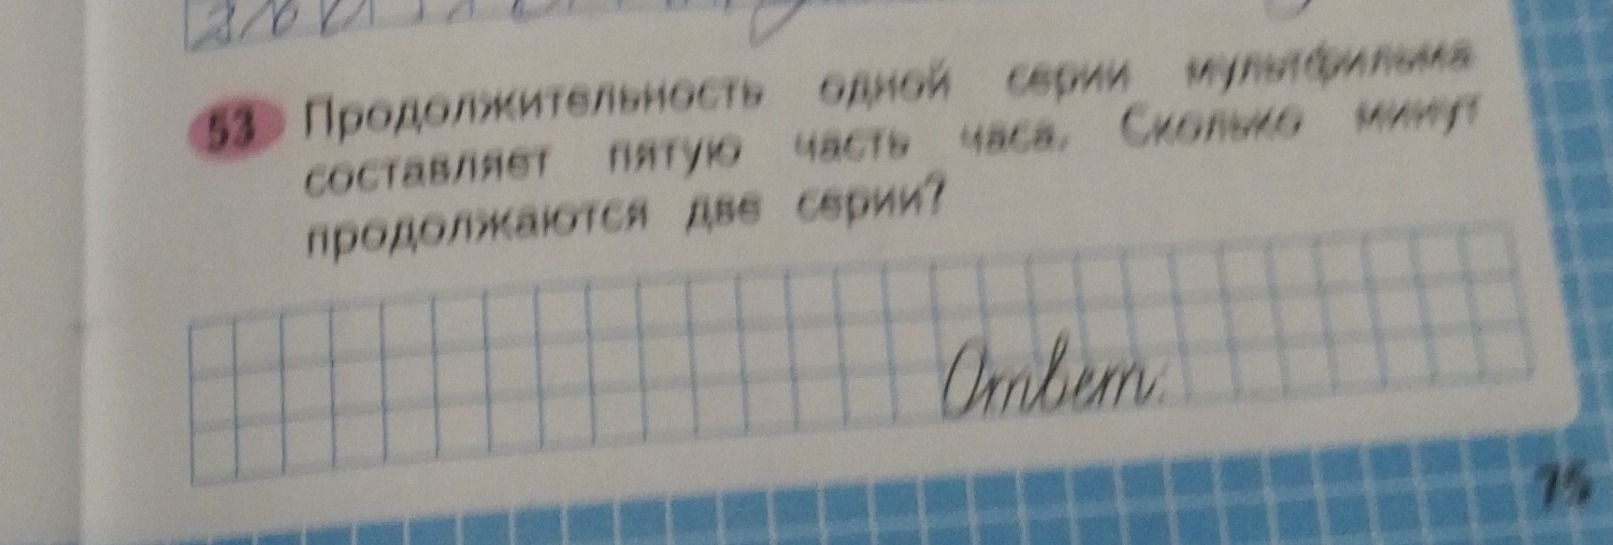 53 Продолжительность одной серии мультфильма
составляет пятую часть часа. Сколько минут
продолжаются две серии?
Ответ:
75